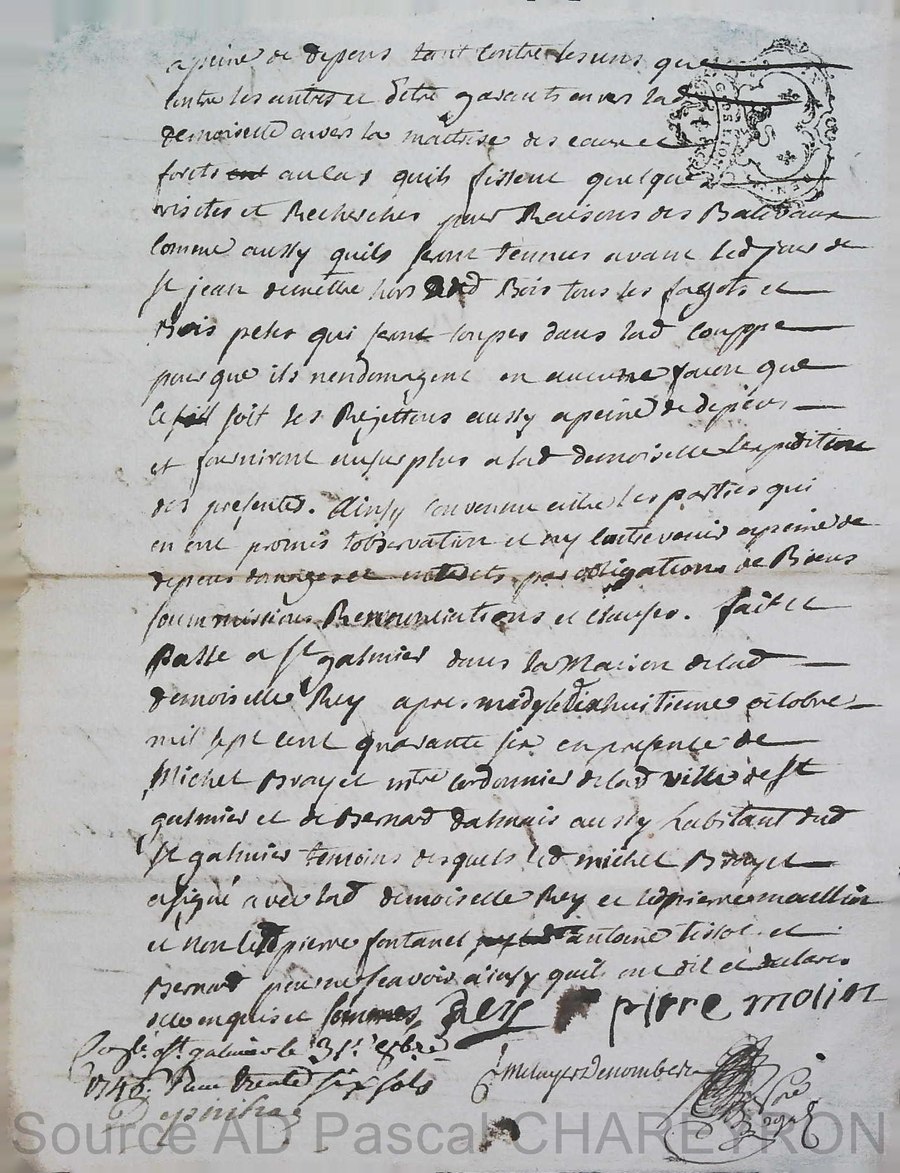 a peine de depens tant contre les uns que
contre les autres et d'etre garants envers lad
demoiselle envers la maitrise des eaux et
forets au cas quils fissent quelque
visites et Recherches pour Raisons des Baliveaux
comme aussy quils seront tennues avant led jour de
st jean de mettre hors dud Bois tous les fagots et
Bois petes qui seront coupes dans lad couppe
pour que ils nendomagent en aucune facon que
ce soit les Rejettons aussy a peine de depens
et fourniront au surplus a lad demoiselle Lexpedition
des presentes. Ainsy convenue entre les parties qui
en ont promis lobservation et ny contrevenir a peine de
depens domages et interets par obligations de Biens
soummissions Rennonciations et clauses. fait et
Passe a st galmier dans la Maison de lad
demoiselle Rey apres midy le dixhuitieme octobre
mil sept cent quarante six en presence de
Michel Brayet mtre cordonnier de lad ville de st
galmier et de Bernard dalmais aussy habitant dud
st galmier temoins desquels led michel Brayet
a signé avec lad demoiselle Rey et led pierre maollin
et non led pierre fontanel antoine tissot et
Bernard pour ne scavoir ainsy quils ont dit et declare
de ce enquis et sommes Rey pierre molin
st galmier le 31e 8bre
1746 trente six sols
GENER
Source AD Pascal CHAREYRON